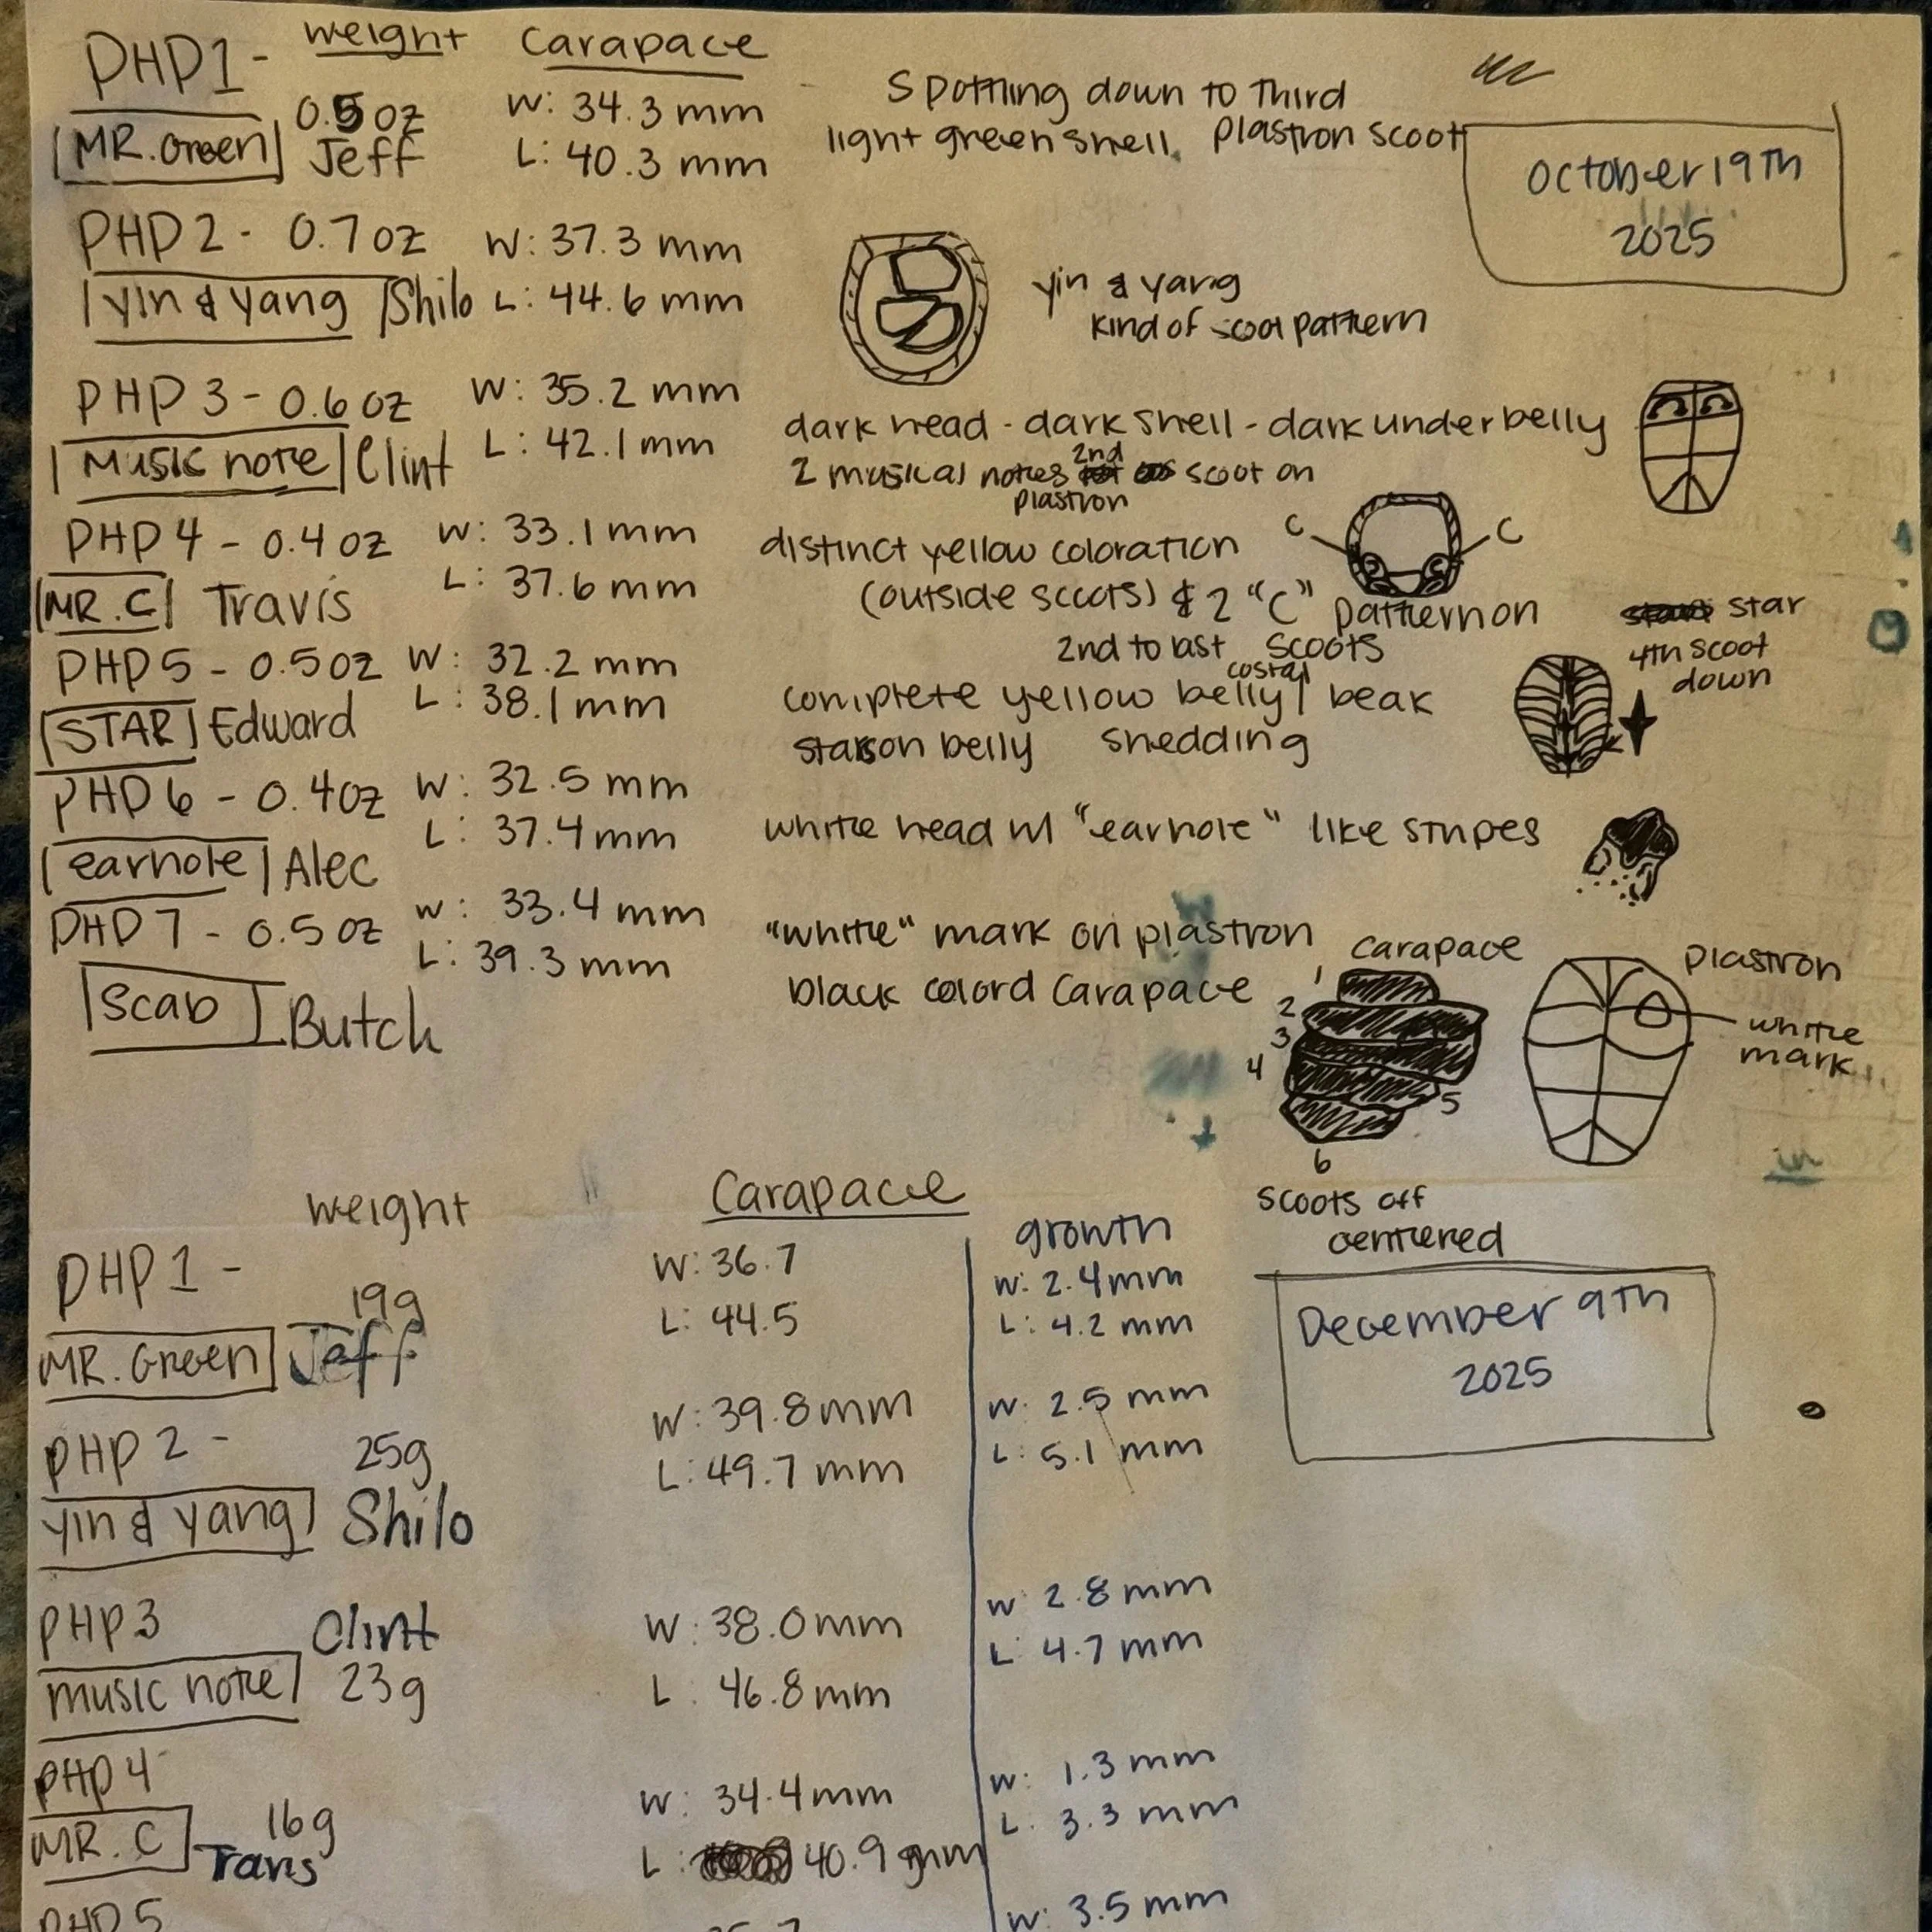 PHP1 - weight Carapace
0.5oz W: 34.3 mm
MR. Green Jeff L: 40.3 mm
Spottling down to Third
light green shell. Plastron scoot
October 19th
2025
PHP2 - 0.7oz W: 37.3 mm
yin & yang Shilo L: 44.6 mm
yin & yang
kind of scoot pattern
PHP3 - 0.6oz W: 35.2 mm
Music note Clint L: 42.1mm
dark head - dark shell - dark underbelly
2 musical notes 2nd scoot on
plastron
PHP4 - 0.4oz W: 33.1mm
MR. C Travis L: 37.6 mm
distinct yellow coloration
C C
(outside scoots) & 2 "C" pattern on
2nd to last scoots
costal
PHP5 - 0.5oz W: 32.2 mm
STAR Edward L: 38.1mm
complete yellow belly / beak
on belly shedding
star
4th scoot
down
PHP6 - 0.4oz W: 32.5 mm
earhole Alec L: 37.4mm
white head w/ "earhole" like stripes
PHP7 - 0.5oz W: 33.4mm
scab Butch L: 39.3mm
"white" mark on plastron
black colord Carapace
carapace
1
2
3
4
5
6
scoots off
centered
plastron
white
mark
weight Carapace growth
PHP1 - W: 36.7 W: 2.4mm
19g L: 44.5 L: 4.2 mm
MR. Green Jeff
December 9th
2025
PHP2 - 25g W: 39.8mm W: 2.5 mm
yin & yang Shilo L: 49.7 mm L: 5.1 mm
PHP3 Clint W: 38.0mm W 2.8mm
music note 23g L: 46.8mm L: 4.7mm
PHP4 W: 34.4mm W: 1.3 mm
MR. C 16g L: 40.9 mm L: 3.3 mm
Travis
PHP5 W: 3.5mm